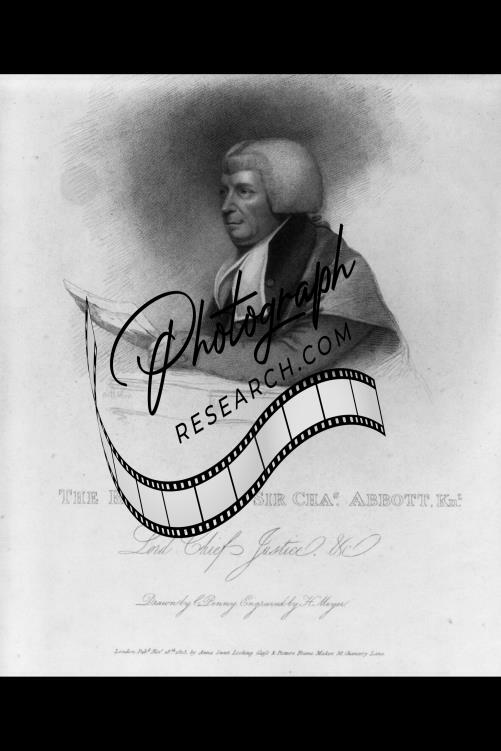 Photograph
RESEARCH.COM
THE SIR CHAS. ABBOTT, KNT.
Lord Chief Justice, &c
Drawn by C. Penny. Engraved by H. Meyer
London Pubd. by Anne Looking Glass & Picture Frame Maker Chancery Lane